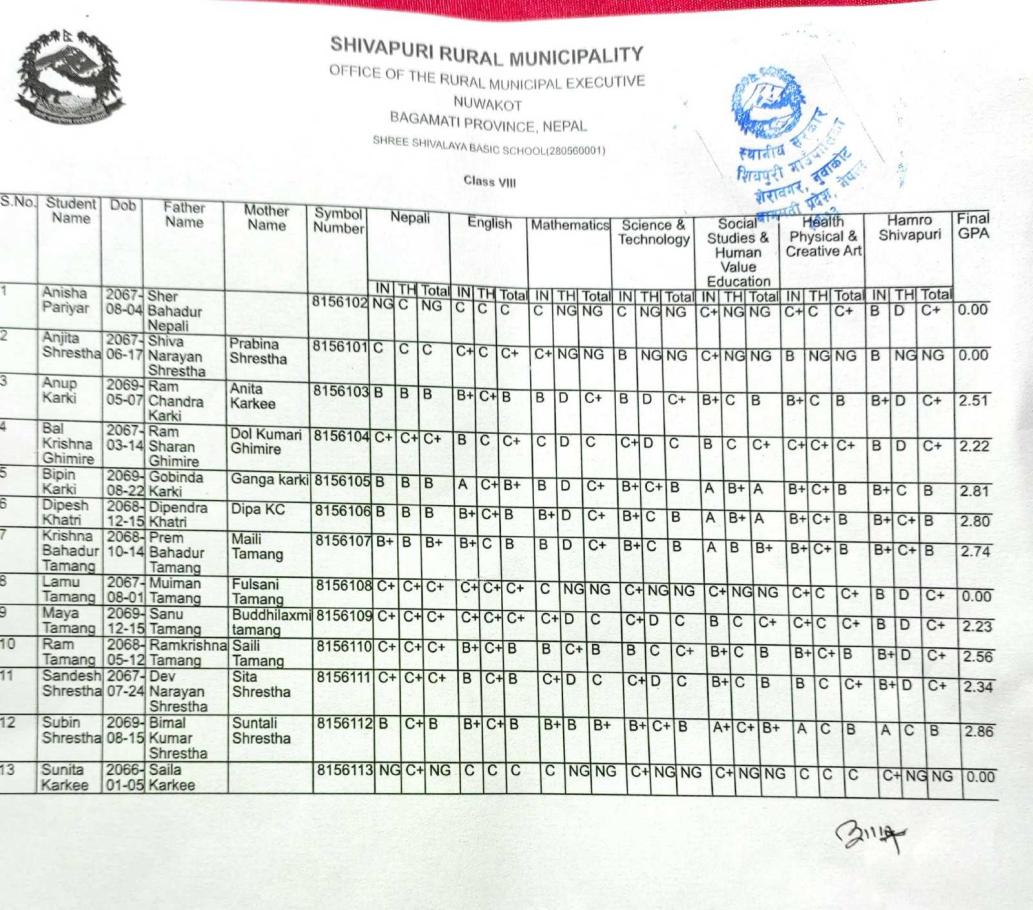 SHIVAPURI RURAL MUNICIPALITY
OFFICE OF THE RURAL MUNICIPAL EXECUTIVE
NUWAKOT
BAGAMATI PROVINCE, NEPAL
SHREE SHIVALAYA BASIC SCHOOL(280560001)
Class VIII
स्थानीय सरकार
शिवपुरी गाउँपालिका
शेराबगर, नुवाकोट
बागमती प्रदेश, नेपाल
S.No. Student Name Dob Father Name Mother Name Symbol Number Nepali English Mathematics Science & Technology Social Studies & Human Value Education Health Physical & Creative Art Hamro Shivapuri Final GPA
IN TH Total IN TH Total IN TH Total IN TH Total IN TH Total IN TH Total IN TH Total
1 Anisha Pariyar 2067-08-04 Sher Bahadur Nepali 8156102 NG C NG C C C C NG NG C NG NG C+ NG NG C+ C C+ B D C+ 0.00
2 Anjita Shrestha 2067-06-17 Shiva Narayan Shrestha Prabina Shrestha 8156101 C C C C+ C C+ C+ NG NG B NG NG C+ NG NG B NG NG B NG NG 0.00
3 Anup Karki 2069-05-07 Ram Chandra Karki Anita Karkee 8156103 B B B B+ C+ B B D C+ B D C+ B+ C B B+ C B B+ D C+ 2.51
4 Bal Krishna Ghimire 2067-03-14 Ram Sharan Ghimire Dol Kumari Ghimire 8156104 C+ C+ C+ B C C+ C D C C+ D C B C C+ C+ C+ C+ B D C+ 2.22
5 Bipin Karki 2069-08-22 Gobinda Karki Ganga karki 8156105 B B B A C+ B+ B D C+ B+ C+ B A B+ A B+ C+ B B+ C B 2.81
6 Dipesh Khatri 2068-12-15 Dipendra Khatri Dipa KC 8156106 B B B B+ C+ B B+ D C+ B+ C B A B+ A B+ C+ B B+ C+ B 2.80
7 Krishna Bahadur Tamang 2068-10-14 Prem Bahadur Tamang Maili Tamang 8156107 B+ B B+ B+ C B B D C+ B+ C B A B B+ B+ C+ B B+ C+ B 2.74
8 Lamu Tamang 2067-08-01 Muiman Tamang Fulsani Tamang 8156108 C+ C+ C+ C+ C+ C+ C NG NG C+ NG NG C+ NG NG C+ C C+ B D C+ 0.00
9 Maya Tamang 2069-12-15 Sanu Tamang Buddhilaxmi tamang 8156109 C+ C+ C+ C+ C+ C+ C+ D C C+ D C B C C+ C+ C C+ B D C+ 2.23
10 Ram Tamang 2068-05-12 Ramkrishna Tamang Saili Tamang 8156110 C+ C+ C+ B+ C+ B B C+ B B C C+ B+ C B B+ C+ B B+ D C+ 2.56
11 Sandesh Shrestha 2067-07-24 Dev Narayan Shrestha Sita Shrestha 8156111 C+ C+ C+ B C+ B C+ D C C+ D C B+ C B B C C+ B+ D C+ 2.34
12 Subin Shrestha 2069-08-15 Bimal Kumar Shrestha Suntali Shrestha 8156112 B C+ B B+ C+ B B+ B B+ B+ C+ B A+ C+ B+ A C B A C B 2.86
13 Sunita Karkee 2066-01-05 Saila Karkee 8156113 NG C+ NG C C C C NG NG C+ NG NG C+ NG NG C C C C+ NG NG 0.00